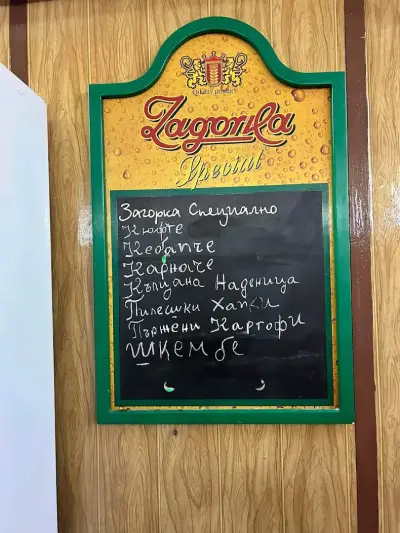 QUALITY PRODUCT
Zagorka
Special
Загорка Специално
Кюфте
Кебапче
Карначе
Къпана Наденица
Пилешки Хапки
Пържени Картофи
Шкембе